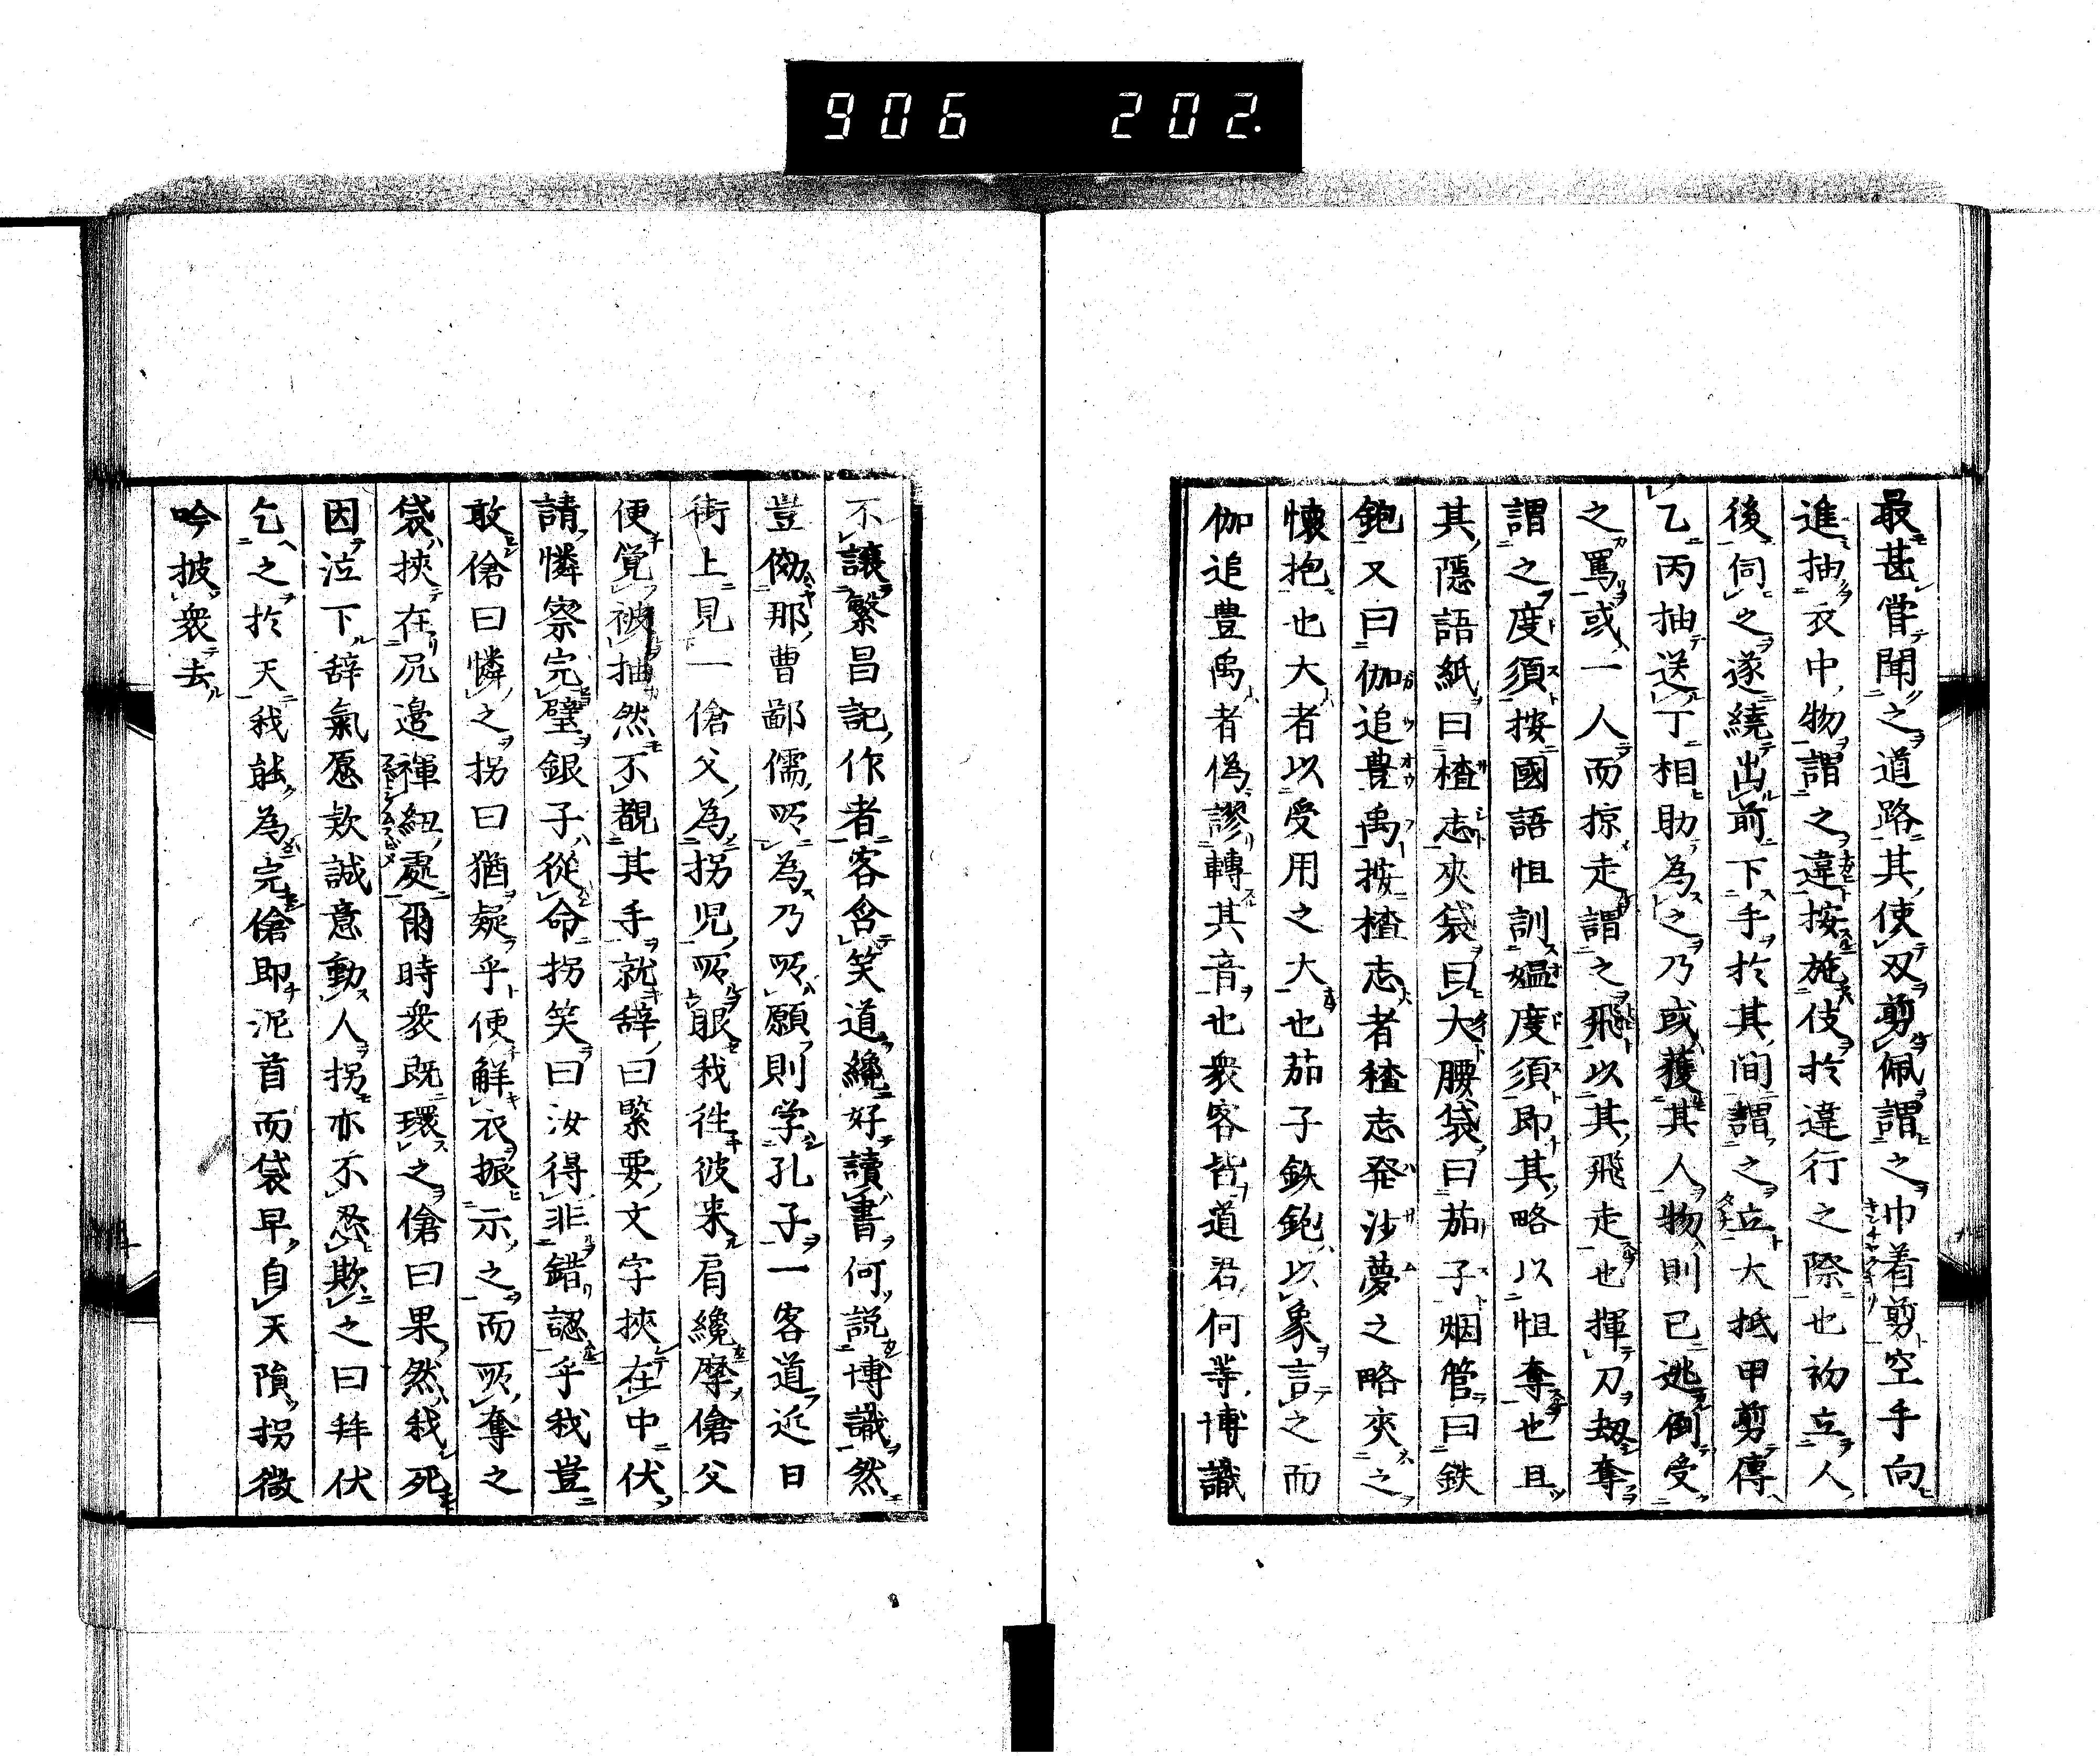 906 202.
最甚嘗聞之道路其使双剪佩謂之巾着剪空手向
進抽衣中物謂之違按施伎於違行之際也初立人
後伺之遂繞出前下手於其間謂之立大抵甲剪傳
乙丙抽送丁相助為之乃或獲其人物則已逃倒受
之罵或一人而掠走謂之飛以其飛走也揮刀劫奪
謂之度須按國語怚訓媪度須即其略以怚奪也且
其隱語紙曰楂志夾袋曰大腰袋曰茄子烟管曰鉄
鉋又曰伽追豊禹按楂志者楂志発沙夢之略夾之
懐抱也大者以受用之大也茄子鉄鉋以象言之而
伽追豊禹者偽謬轉其音也衆客皆道君何等博識
不讓繁昌記作者客含笑道纔好讀書何説博識然
豈傚那曹鄙儒所為乃所願則学孔子一客道近日
街上見一傖父為拐児所眼我徃彼来肩纔摩傖父
便覚被抽然不覩其手就辞曰緊要文字挾在中伏
請憐察完璧銀子從命拐笑曰汝得非錯認乎我豈
敢傖曰憐之拐曰猶疑乎便解衣振示之而所奪之
袋挾在尻邊褌紐處爾時衆既環之傖曰果然我死
因泣下辞氣愿欵誠意動人拐亦不忍欺之曰拜伏
乞之於天我能為完傖即泥首而袋早自天隕拐微
吟披衆去